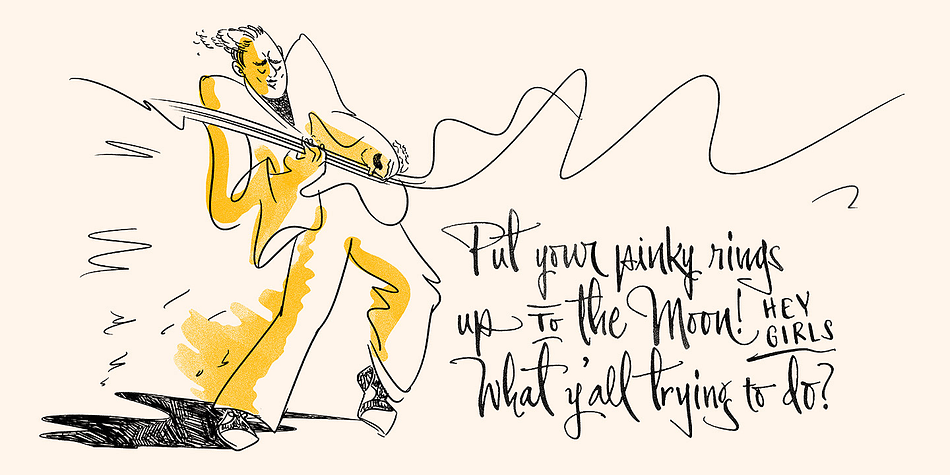 Put your pinky rings
up to the Moon! HEY GIRLS
What y'all trying to do?